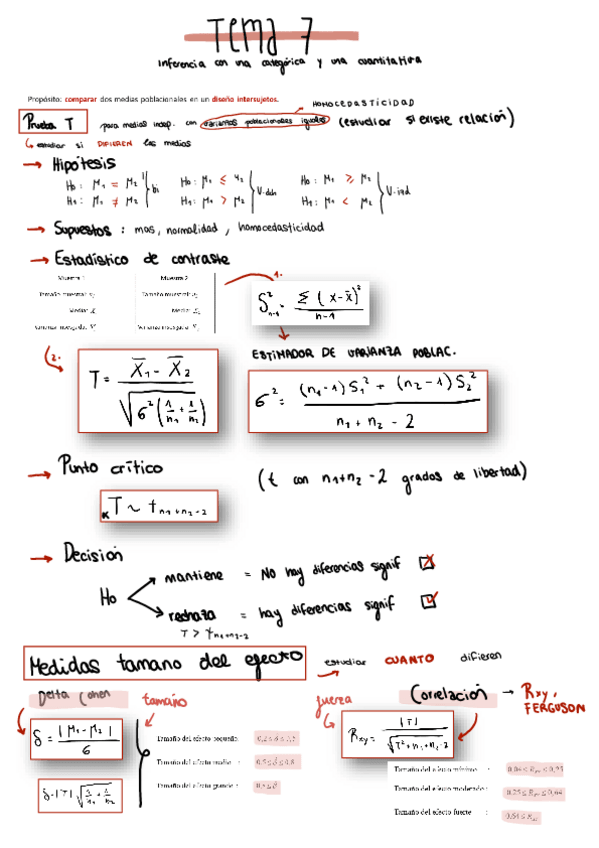 Tema 7
Inferencia con una categórica y una cuantitativa
Propósito: comparar dos medias poblacionales en un diseño intersujetos.
HOMOCEDASTICIDAD
Prueba T para medias indep. con varianzas poblacionales iguales (estudiar si existe relación)
estudiar si DIFIEREN las medias
→ Hipótesis
H₀ : μ₁ = μ₂ H₀ : μ₁ ≤ μ₂ H₀ : μ₁ ≥ μ₂
H₁ : μ₁ ≠ μ₂ bi H₁ : μ₁ > μ₂ V. dch H₁ : μ₁ < μ₂ V. izq
→ Supuestos : mas, normalidad, homocedasticidad
→ Estadístico de contraste
1.
Muestra 1 Muestra 2
Tamaño muestral: n₁ Tamaño muestral: n₂
Media: Media:
Varianza insesgada: Varianza insesgada:
S²ₙ₋₁ = Σ (x-x̄)² / n-1
2.
ESTIMADOR DE VARIANZA POBLAC.
T = X̄₁ - X̄₂ / √(σ² (1/n₁ + 1/n₂))
σ² = (n₁-1) S₁² + (n₂-1) S₂² / n₁ + n₂ - 2
→ Punto crítico (t con n₁+n₂ -2 grados de libertad)
T ~ t n₁+n₂-2
→ Decisión
H₀ mantiene = No hay diferencias signif
rechaza = hay diferencias signif
T > t n₁+n₂-2
Medidas tamano del efecto → estudiar CUANTO difieren
Delta Cohen tamaño fuerza Correlación → Rxy, FERGUSON
δ = |μ₁ - μ₂| / σ
Rxy = |T| / √(T² + n₁ + n₂ - 2)
Tamaño del efecto pequeño: 0,2 ≤ δ ≤ 0,5
Tamaño del efecto medio : 0,5 ≤ δ ≤ 0,8
Tamaño del efecto grande : 0,8 ≤ δ
δ = |T| √(1/n₁ + 1/n₂)
Tamaño del efecto mínimo :
Tamaño del efecto moderado :
Tamaño del efecto fuerte :